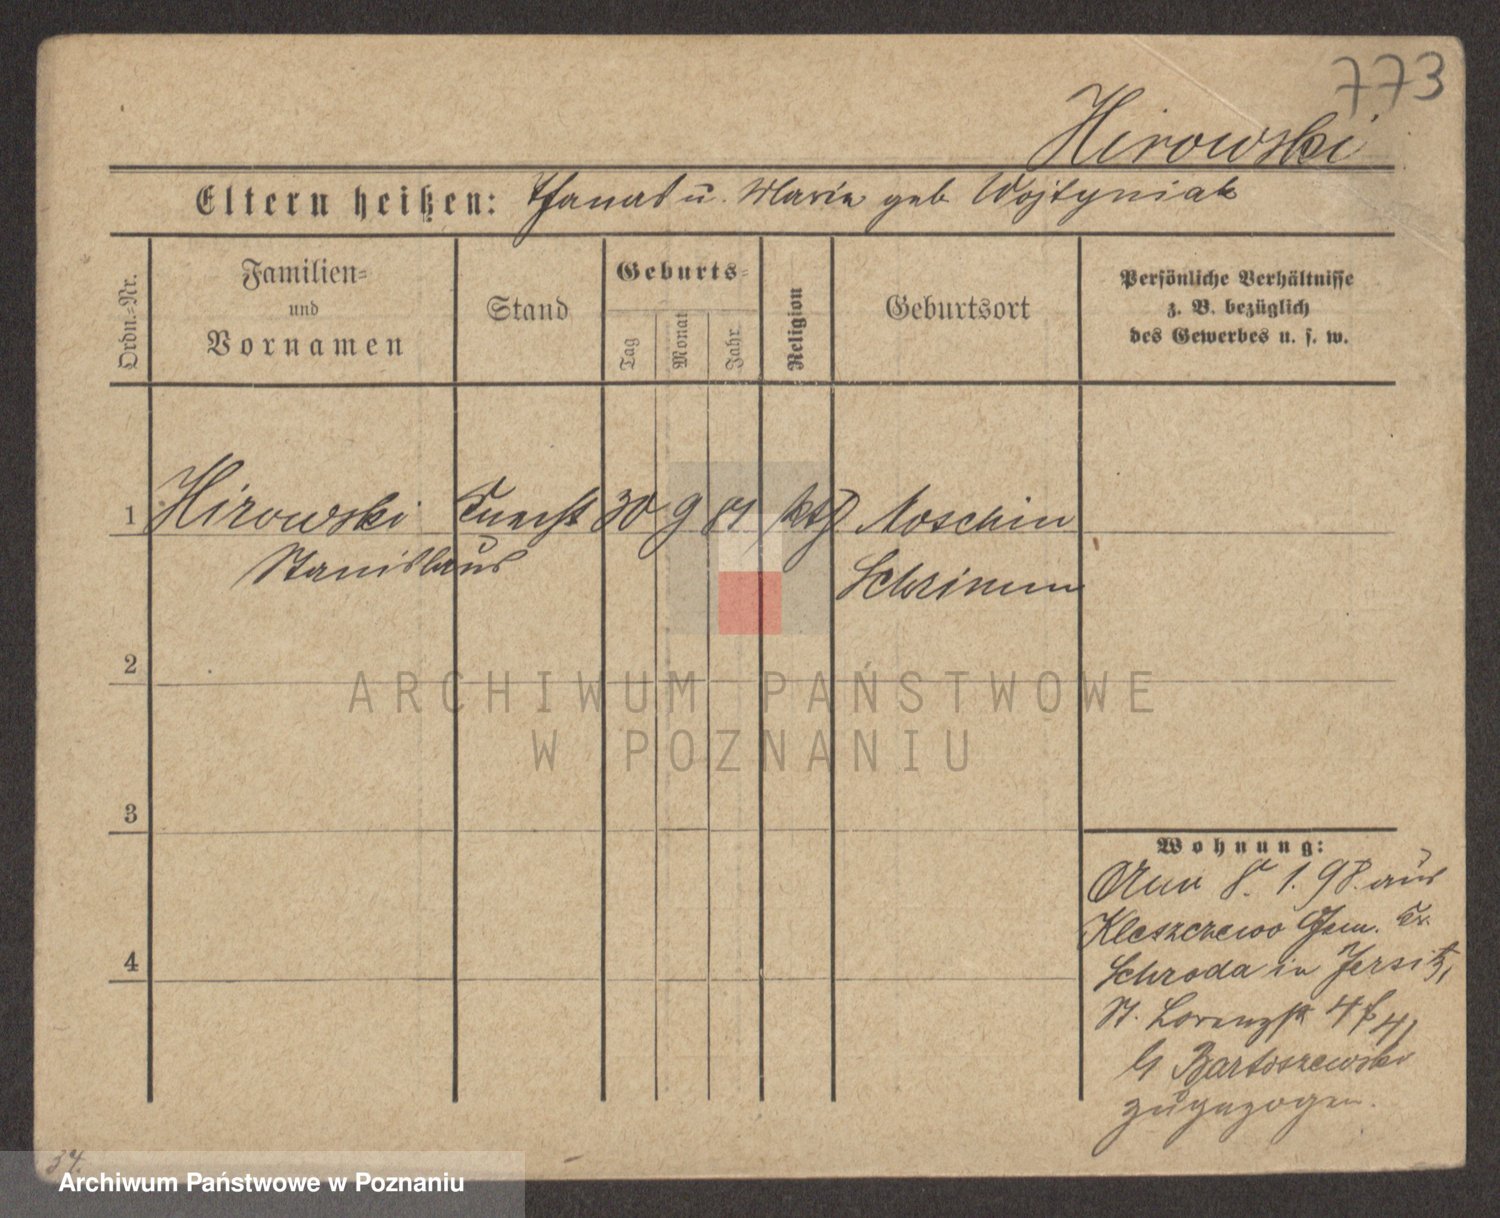 773
Hirowski
Eltern heißen: u. Marie geb. Wojtyniak
Ordn.-Nr.
Familien-
und
Vornamen
Stand
Geburts-
Tag
Monat
Jahr
Religion
Geburtsort
Persönliche Verhältnisse
z. B. bezüglich
des Gewerbes u. s. w.
1 Hirowski Knecht 30 9 kth. Moschin
Stanislaus Schrimm
2
3
4
Wohnung:
8. 1. 98. aus
Kleszczewo Gem. Kr.
Schroda in Jersitz,
St. Lorenzstr
Bartoszewski
zugezogen.
34.
ARCHIWUM PAŃSTWOWE
W POZNANIU
Archiwum Państwowe w Poznaniu